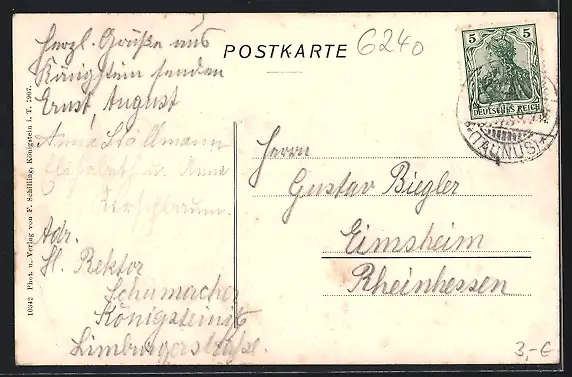 Herzl. Grüße aus
Königstein senden
Ernst, August,
Anna Stollmann
Elisabeth u. Anna
Kirschbaum.
Adr.
H. Rektor
Schumacher
Königstein i/T
Limburgerstraße.
10342 Phot. u. Verlag von F. Schilling, Königstein i. T. 1907.
POSTKARTE
6240
5 5
DEUTSCHES REICH
(TAUNUS)
Herrn
Gustav Biegler
Eimsheim
Rheinhessen
3,-€